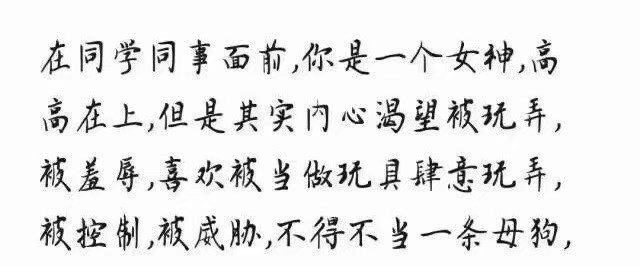 在同学同事面前,你是一个女神,高
高在上,但是其实内心渴望被玩弄,
被羞辱,喜欢被当做玩具肆意玩弄,
被控制,被威胁,不得不当一条母狗,